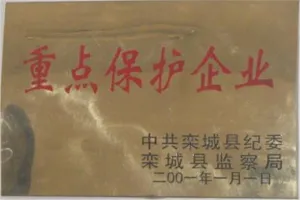 重点保护企业
中共栾城县纪委
栾城县监察局
二00一年一月一日